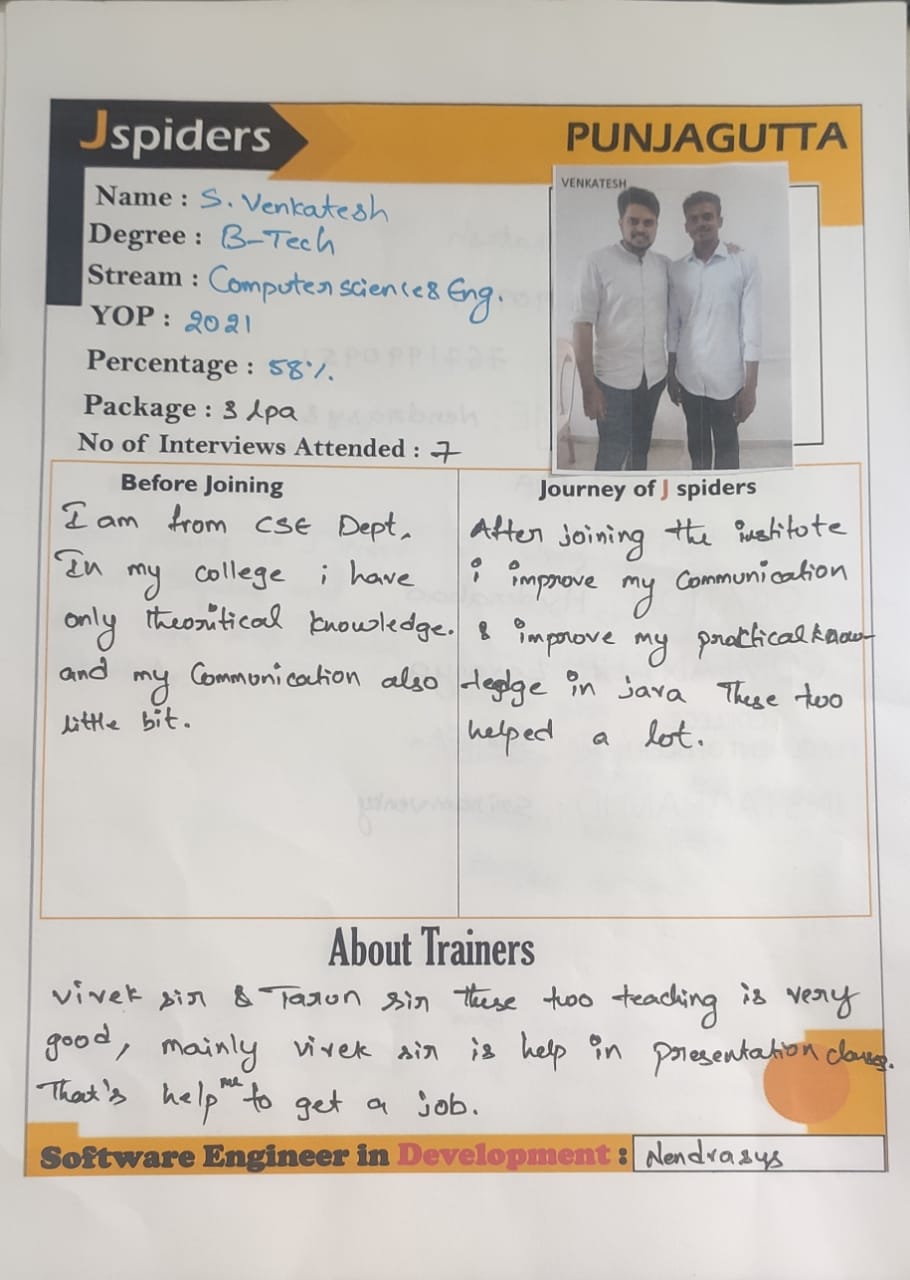 Jspiders
PUNJAGUTTA
VENKATESH
Name : S. Venkatesh
Degree : B-Tech
Stream : Computer science & Eng.
YOP : 2021
Percentage : 58%.
Package : 3 Lpa
No of Interviews Attended : 7
Before Joining
I am from CSE Dept.
In my college i have
only theoritical knowledge.
and my Communication also
little bit.
Journey of J spiders
After joining the institute
i improve my Communication
& improve my practical know-
ledge in java These two
helped a lot.
About Trainers
Vivek sir & Tarun sir these two teaching is very
good, mainly vivek sir is help in presentation classes.
That's help me to get a job.
Software Engineer in Development : Nendrasys